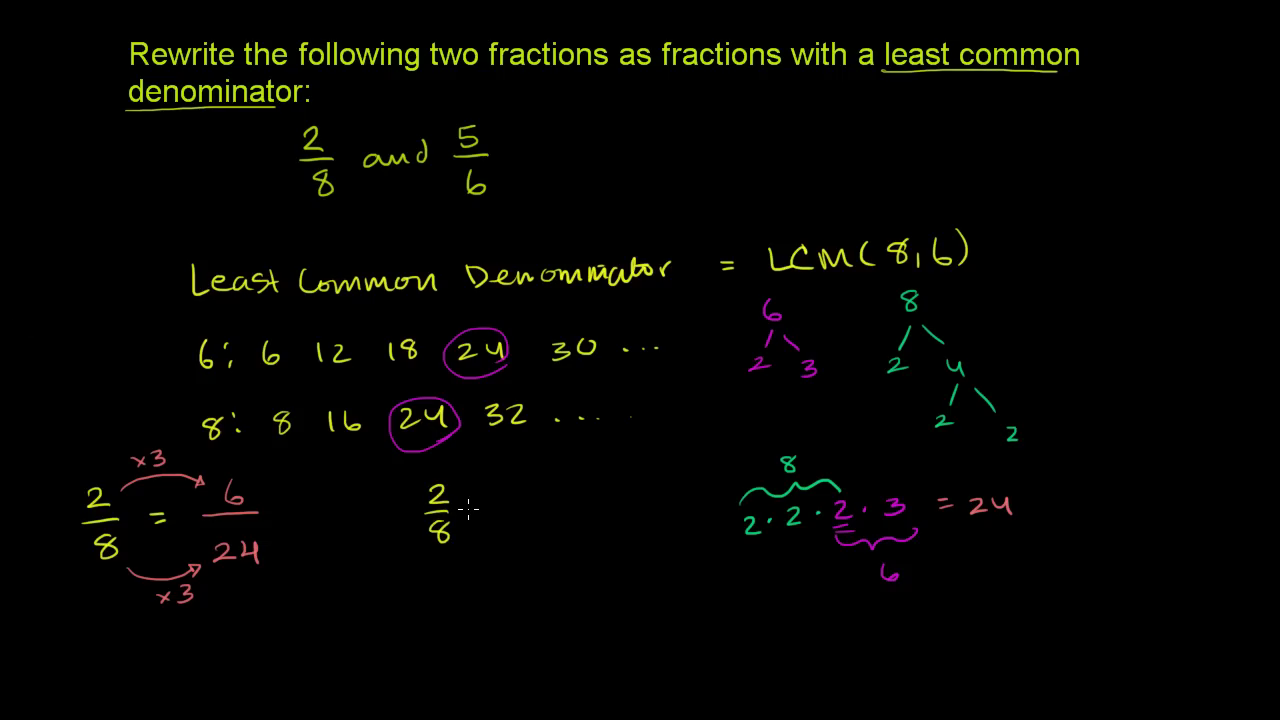 Rewrite the following two fractions as fractions with a least common
denominator:
2/8 and 5/6
Least Common Denominator = LCM(8,6)
6: 6 12 18 24 30 ...
8: 8 16 24 32 ....
6
2 3
8
2 4
2 2
×3
2/8 = 6/24
×3
2/8
8
2·2·2·3 = 24
6